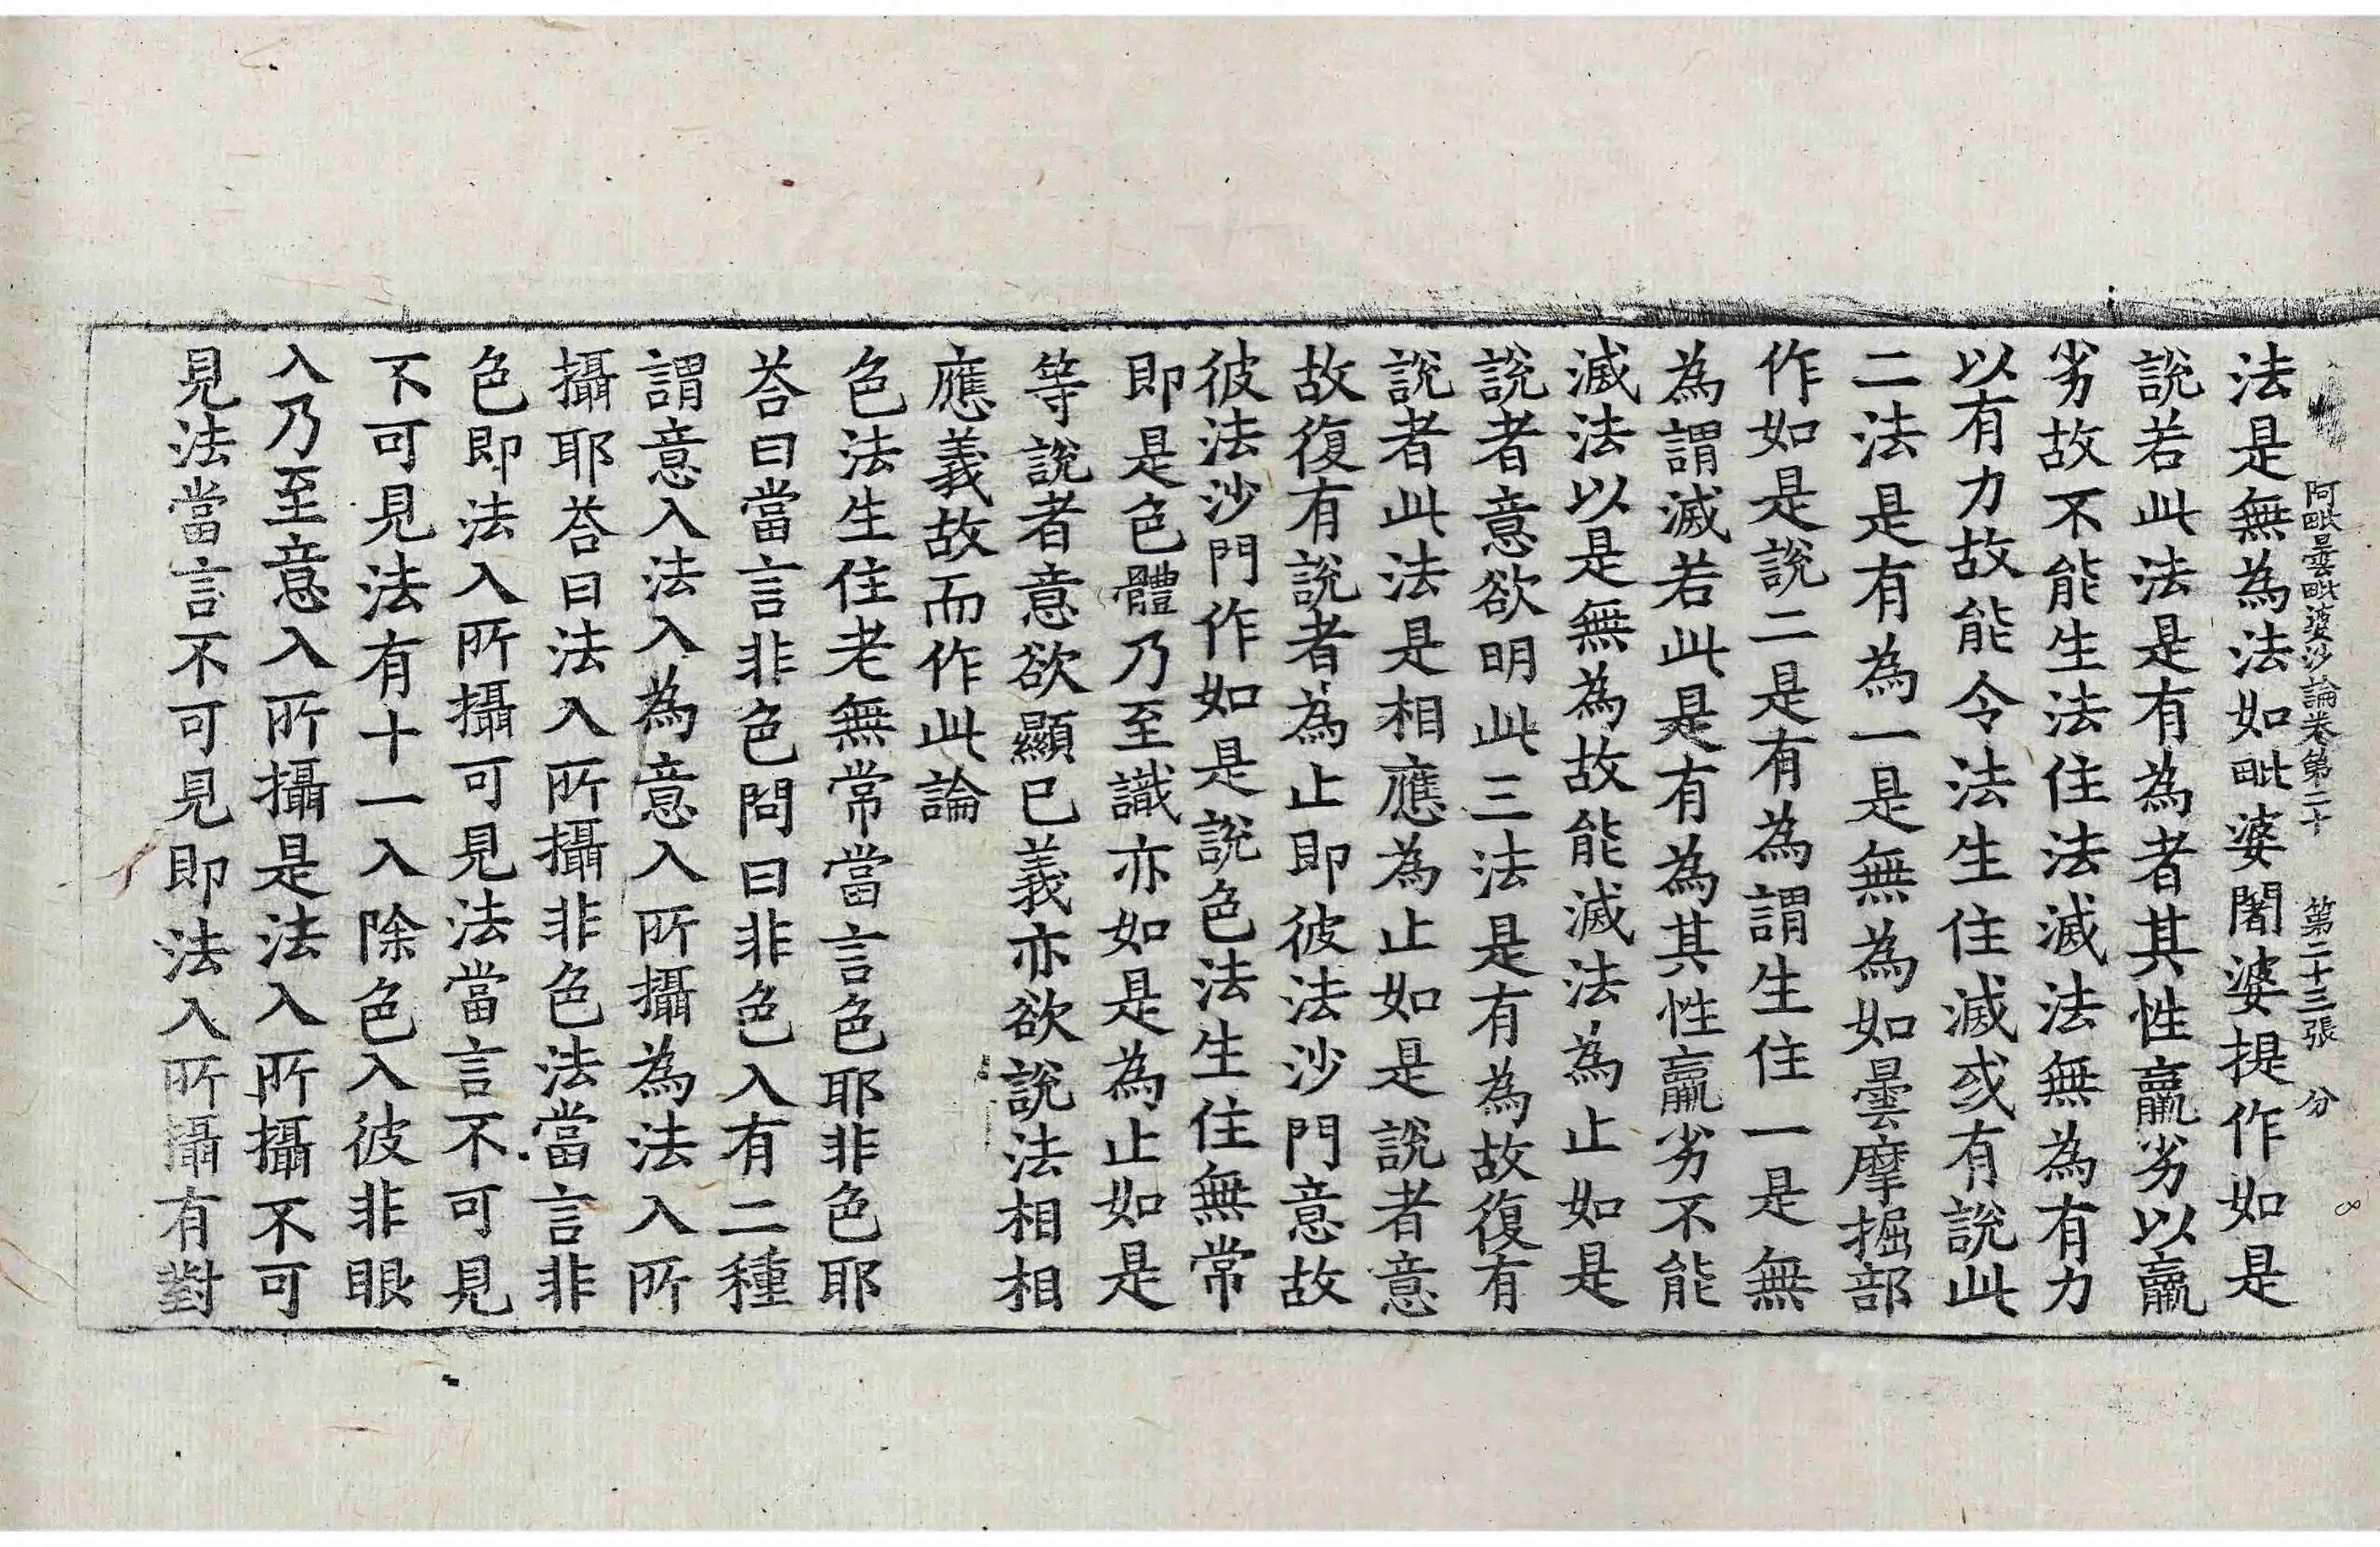 阿毗曇毗婆沙論卷第二十 第二十三張 分
法是無為法如毗婆闍婆提作如是
說若此法是有為者其性羸劣以羸
劣故不能生法住法滅法無為有力
以有力故能令法生住滅或有說此
二法是有為一是無為如曇摩掘部
作如是說二是有為謂生住一是無
為謂滅若此是有為其性羸劣不能
滅法以是無為故能滅法為止如是
說者意欲明此三法是有為故復有
說者此法是相應為止如是說者意
故復有說者為止即彼法沙門意故
彼法沙門作如是說色法生住無常
即是色體乃至識亦如是為止如是
等說者意欲顯已義亦欲說法相相
應義故而作此論
色法生住老無常當言色耶非色耶
荅曰當言非色問曰非色入有二種
謂意入法入為意入所攝為法入所
攝耶荅曰法入所攝非色法當言非
色即法入所攝可見法當言不可見
不可見法有十一入除色入彼非眼
入乃至意入所攝是法入所攝不可
見法當言不可見即法入所攝有對